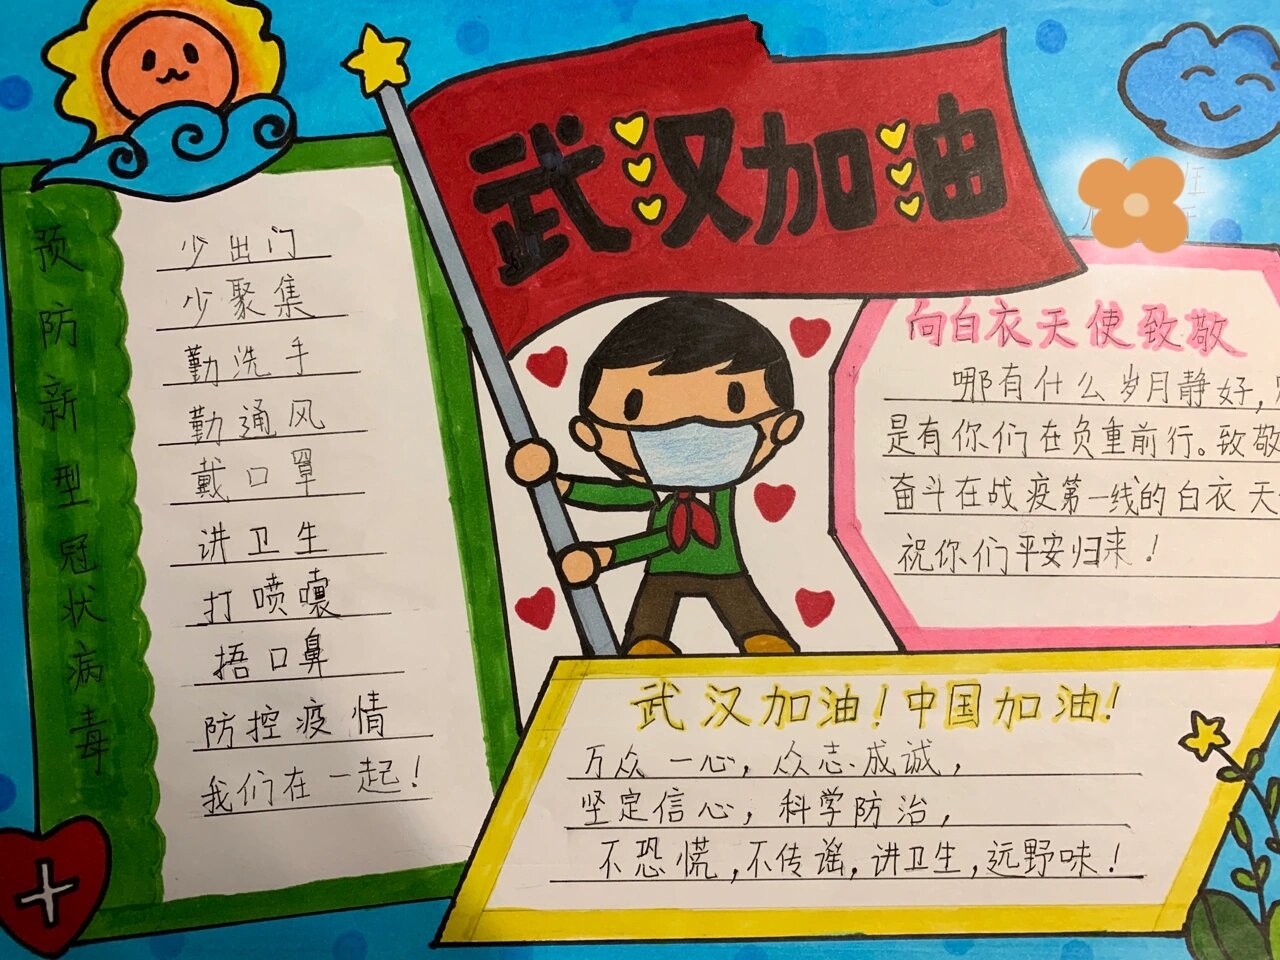 武汉加油
预防新型冠状病毒
少出门
少聚集
勤洗手
勤通风
戴口罩
讲卫生
打喷嚏
捂口鼻
防控疫情
我们在一起！
向白衣天使致敬
哪有什么岁月静好，
是有你们在负重前行。致敬
奋斗在战疫第一线的白衣天
祝你们平安归来！
武汉加油！中国加油！
万众一心，众志成诚，
坚定信心，科学防治，
不恐慌，不传谣，讲卫生，远野味！